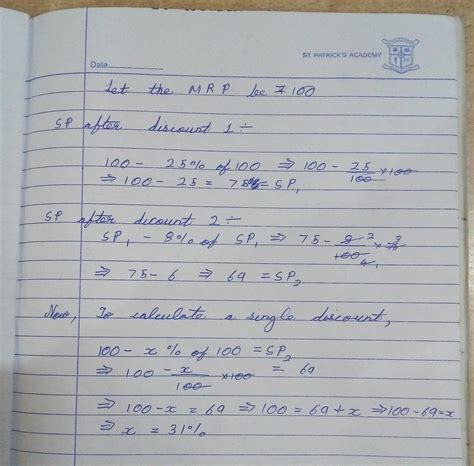 ST. PATRICK'S ACADEMY
Date
Let the MRP be ₹ 100
SP after discount 1 ÷
100 - 25% of 100 ⇒ 100 - 25/100 × 100
⇒ 100 - 25 = 75 = SP₁
SP after dicount 2 ÷
SP₁ - 8% of SP₁ ⇒ 75 - 8/100 × 75
⇒ 75 - 6 ⇒ 69 = SP₂
Now, To calculate a single discount,
100 - x % of 100 = SP₂
⇒ 100 - x/100 × 100 = 69
⇒ 100 - x = 69 ⇒ 100 = 69 + x ⇒ 100 - 69 = x
⇒ x = 31%